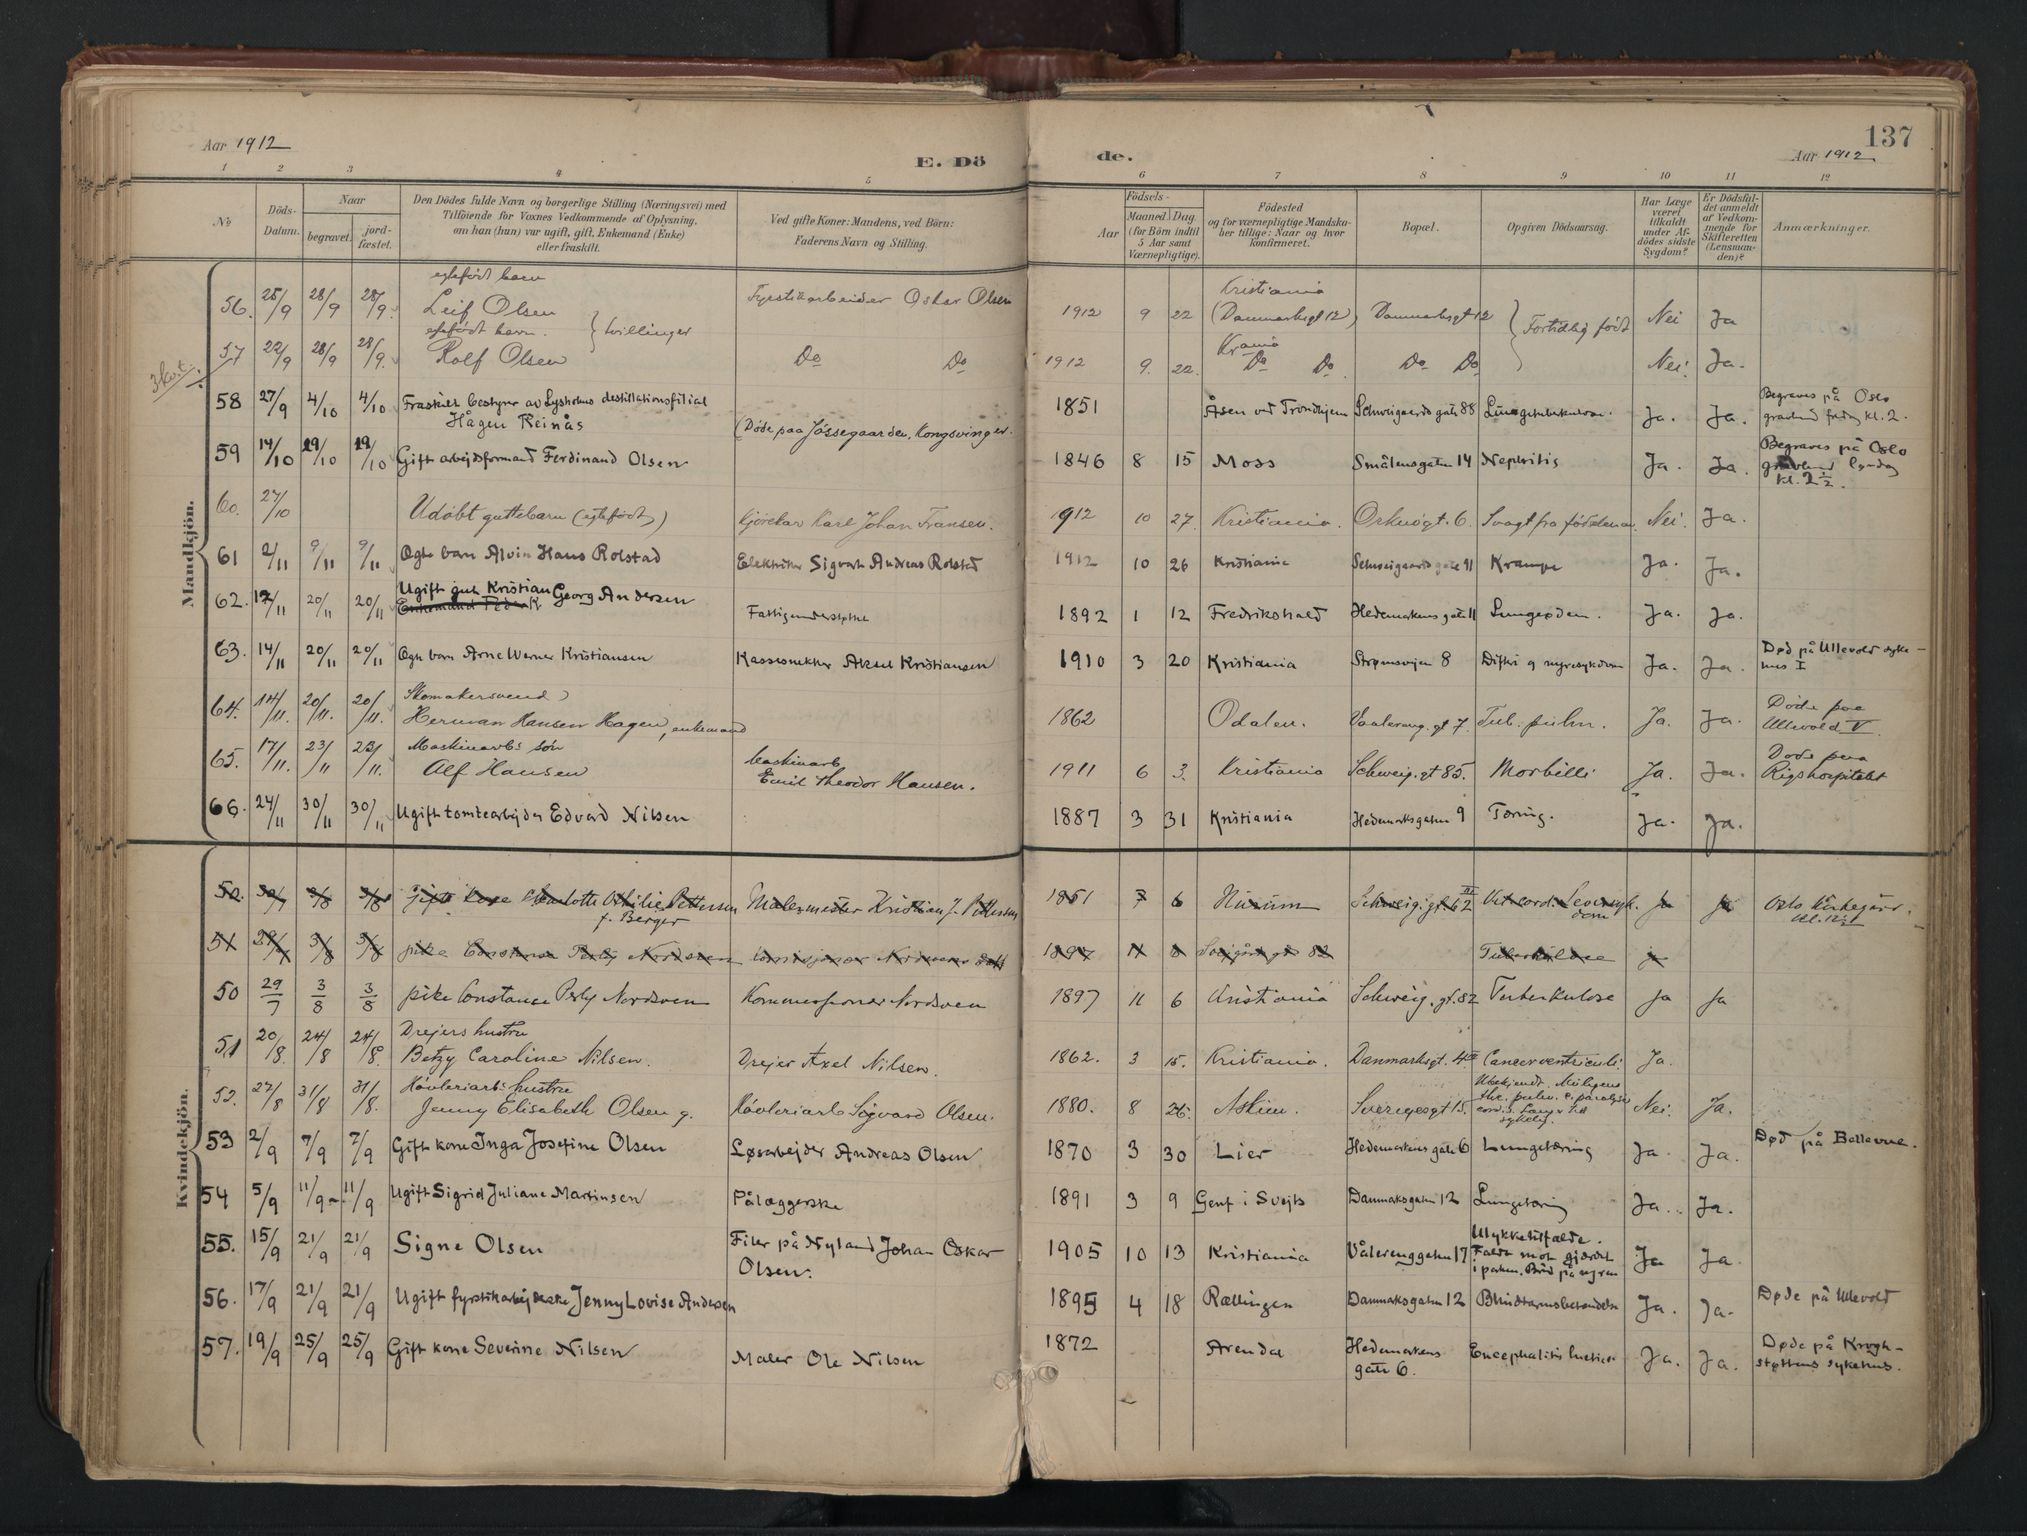 Aar 1912
E. Dö de.
137
Aar 1912
1 2 3 4 5 6 7 8 9 10 11 12
№
Döds-Datum.
Naar
begravet.
jord-fæstet.
Den Dödes fulde Navn og borgerlige Stilling (Næringsvei) med
Tilföiende for Voxnes Vedkommende af Oplysning,
om han (hun) var ugift, gift, Enkemand (Enke)
eller fraskilt.
Ved gifte Koner: Mandens, ved Börn:
Faderens Navn og Stilling.
Födsels-
Aar
Maaned Dag
(for Börn indtil
5 Aar samt
Værnepligtige).
Födested
og for værnepligtige Mandska-
ber tillige: Naar og hvor
konfirmeret.
Bopæl.
Opgiven Dödsaarsag.
Har Læge
været
tilkaldt
under Af-
dödes sidste
Sygdom?
Er Dödsfal-
det anmeldt
af Vedkom-
mende for
Skifteretten
(Lensman-
den)?
Anmærkninger.
Mandkjön.
egtefödt barn
56. 25/9 28/9 28/9 Leif Olsen Fyrstikarbeider Oskar Olsen 1912 9 22 Kristiania (Danmarksgt 12) Danmarksgt 12 Fortidlig födt Nei Ja
egtefödt barn. } tvillinger
57 22/9 28/9 28/9 Rolf Olsen Do Do 1912 9. 22. Krania Do Do Do Do Nei. Ja.
58 27/9 4/10 4/10 Fraskilt bestyrer av Lysholms destillationsfilial
Hågen Reinås (Döde paa Jössegaarden, Kongsvinger. 1851 Åsen ved Trondhjem Schweigaards gate 88 Lungetuberkulose. Ja. Ja. Begraves på Oslo
gravlund fredag kl. 2.
59 14/10 19/10 19/10 Gift arbejdsformand Ferdinand Olsen 1846 8 15 Moss Smålensgaten 14 Nephritis Ja. Ja. Begraves på Oslo
gravlund lørdag
kl. 2 1/2.
60. 27/10 Udöbt guttebarn (egtefödt) Kjörekar Karl Johan Fransen. 1912 10 27. Kristiania. Orknögt. 6. Svagt fra födselen av Nei. Ja.
61 2/11 9/11 9/11 Ægte barn Alvin Hans Rolstad Elektriker Sigvart Andreas Rolstad 1912 10 26 Kristiania Schweigaards gate 91 Krampe Ja. Ja.
62. 12/11 20/11 20/11 Ugift gut Kristian Georg Andersen
Fattigunderstøttet 1892 1 12 Fredrikshald Hedemarkens gate 11 Lungeødem. Ja. Ja.
63. 14/11 20/11 20/11 Ægte barn Arne Werner Kristiansen Kassesnekker Aksel Kristiansen 1910 3 20 Kristiania Strømsvejen 8 Difteri og nyresykdom Ja. Ja. Død på Ullevold syke-
hus I
Skomakersvend
64. 14/11. 20/11. 20/11. Herman Hansen Hagen, enkemand 1862 Odalen. Vaalereng. gt 7. Tub. pulm. Ja. Ja. Döde paa
Ullevold V.
Maskinarb: sön
65. 17/11. 23/11 23/11. Alf Hansen Maskinarb
Emil Theodor Hansen. 1911 6 3. Kristiania Schweig. gt 85. Morbilli Ja. Ja. Döde paa
Rigshospitalet
66. 24/11 30/11 30/11 Ugift tomtearbejder Edvard Nilsen 1887 3 31 Kristiania Hedemarksgaten 9 Tæring. Ja. Ja.
Kvindekjön.
50. 30/7 3/8 3/8 Gift Kone Charlotte Othilie Pettersen
f. Berger Malermester Kristian J. Pettersen 1861 7 6 Hurum Schweig. gt. 62 III Vit. cord. Leversyk-
dom Ja Ja Oslo Kirkegård.
kl. 12 1/2
51 29/7 3/8 3/8 pike Constance Perly Nordsven 1897 11 6 Tuberkulose ja
50 29/7 3/8 3/8 pike Constance Perly Nordsven Kommissioner Nordsven 1897 11 6 Kristiania Schweig. gt. 82 Tuberkulose ja ja
Drejers hustru
51 20/8. 24/8 24/8. Betzy Caroline Nilsen. Drejer Axel Nilsen. 1862. 3 15. Kristiania. Danmarksgt. 4 Cancer ventriculi. Ja.
Hövleriarb: hustru
52. 27/8 31/8 31/8. Jenny Elisabeth Olsen g. Hövleriarb Sigvard Olsen. 1880. 8 26. Askim. Sverigesgt 15. Ubekjendt. Muligens
tbc. pulm. e. paralysis
cordis. Lang tid
sykelig. Nei. Ja.
53 2/9 7/9 7/9 Gift kone Inga Josefine Olsen Løsarbejder Andreas Olsen 1870 3 30 Lier Hedemarkens gate 6 Lungetæring Ja. Ja. Død på Bellevue.
54 5/9 11/9 11/9 Ugift Sigrid Juliane Martinsen Pålæggerske 1891 3 9 Genf i Svejts Danmarksgaten 12 Lungetæring Ja. Ja.
55. 15/9 21/9 21/9 Signe Olsen Filer på Nyland Johan Oskar
Olsen. 1905 10 13 Kristiania Vålerenggaten 17 Ulykkestilfælde.
Faldt mot gjærdet
i parken. Brud på nyren Ja Ja.
56. 17/9 21/9 21/9 Ugift fyrstikarbejderske Jenny Lovise Andersen 1895 4 18 Rællingen Danmarksgaten 12 Blindtarmsbetændelse Ja. Ja. Døde på Ullevold
57. 19/9 25/9 25/9 Gift kone Severine Nilsen Maler Ole Nilsen 1872 Arendal Hedemarkens
gate 6. Encephalitis luetica Ja. Ja. Døde på Krogh-
støttens sykehus.